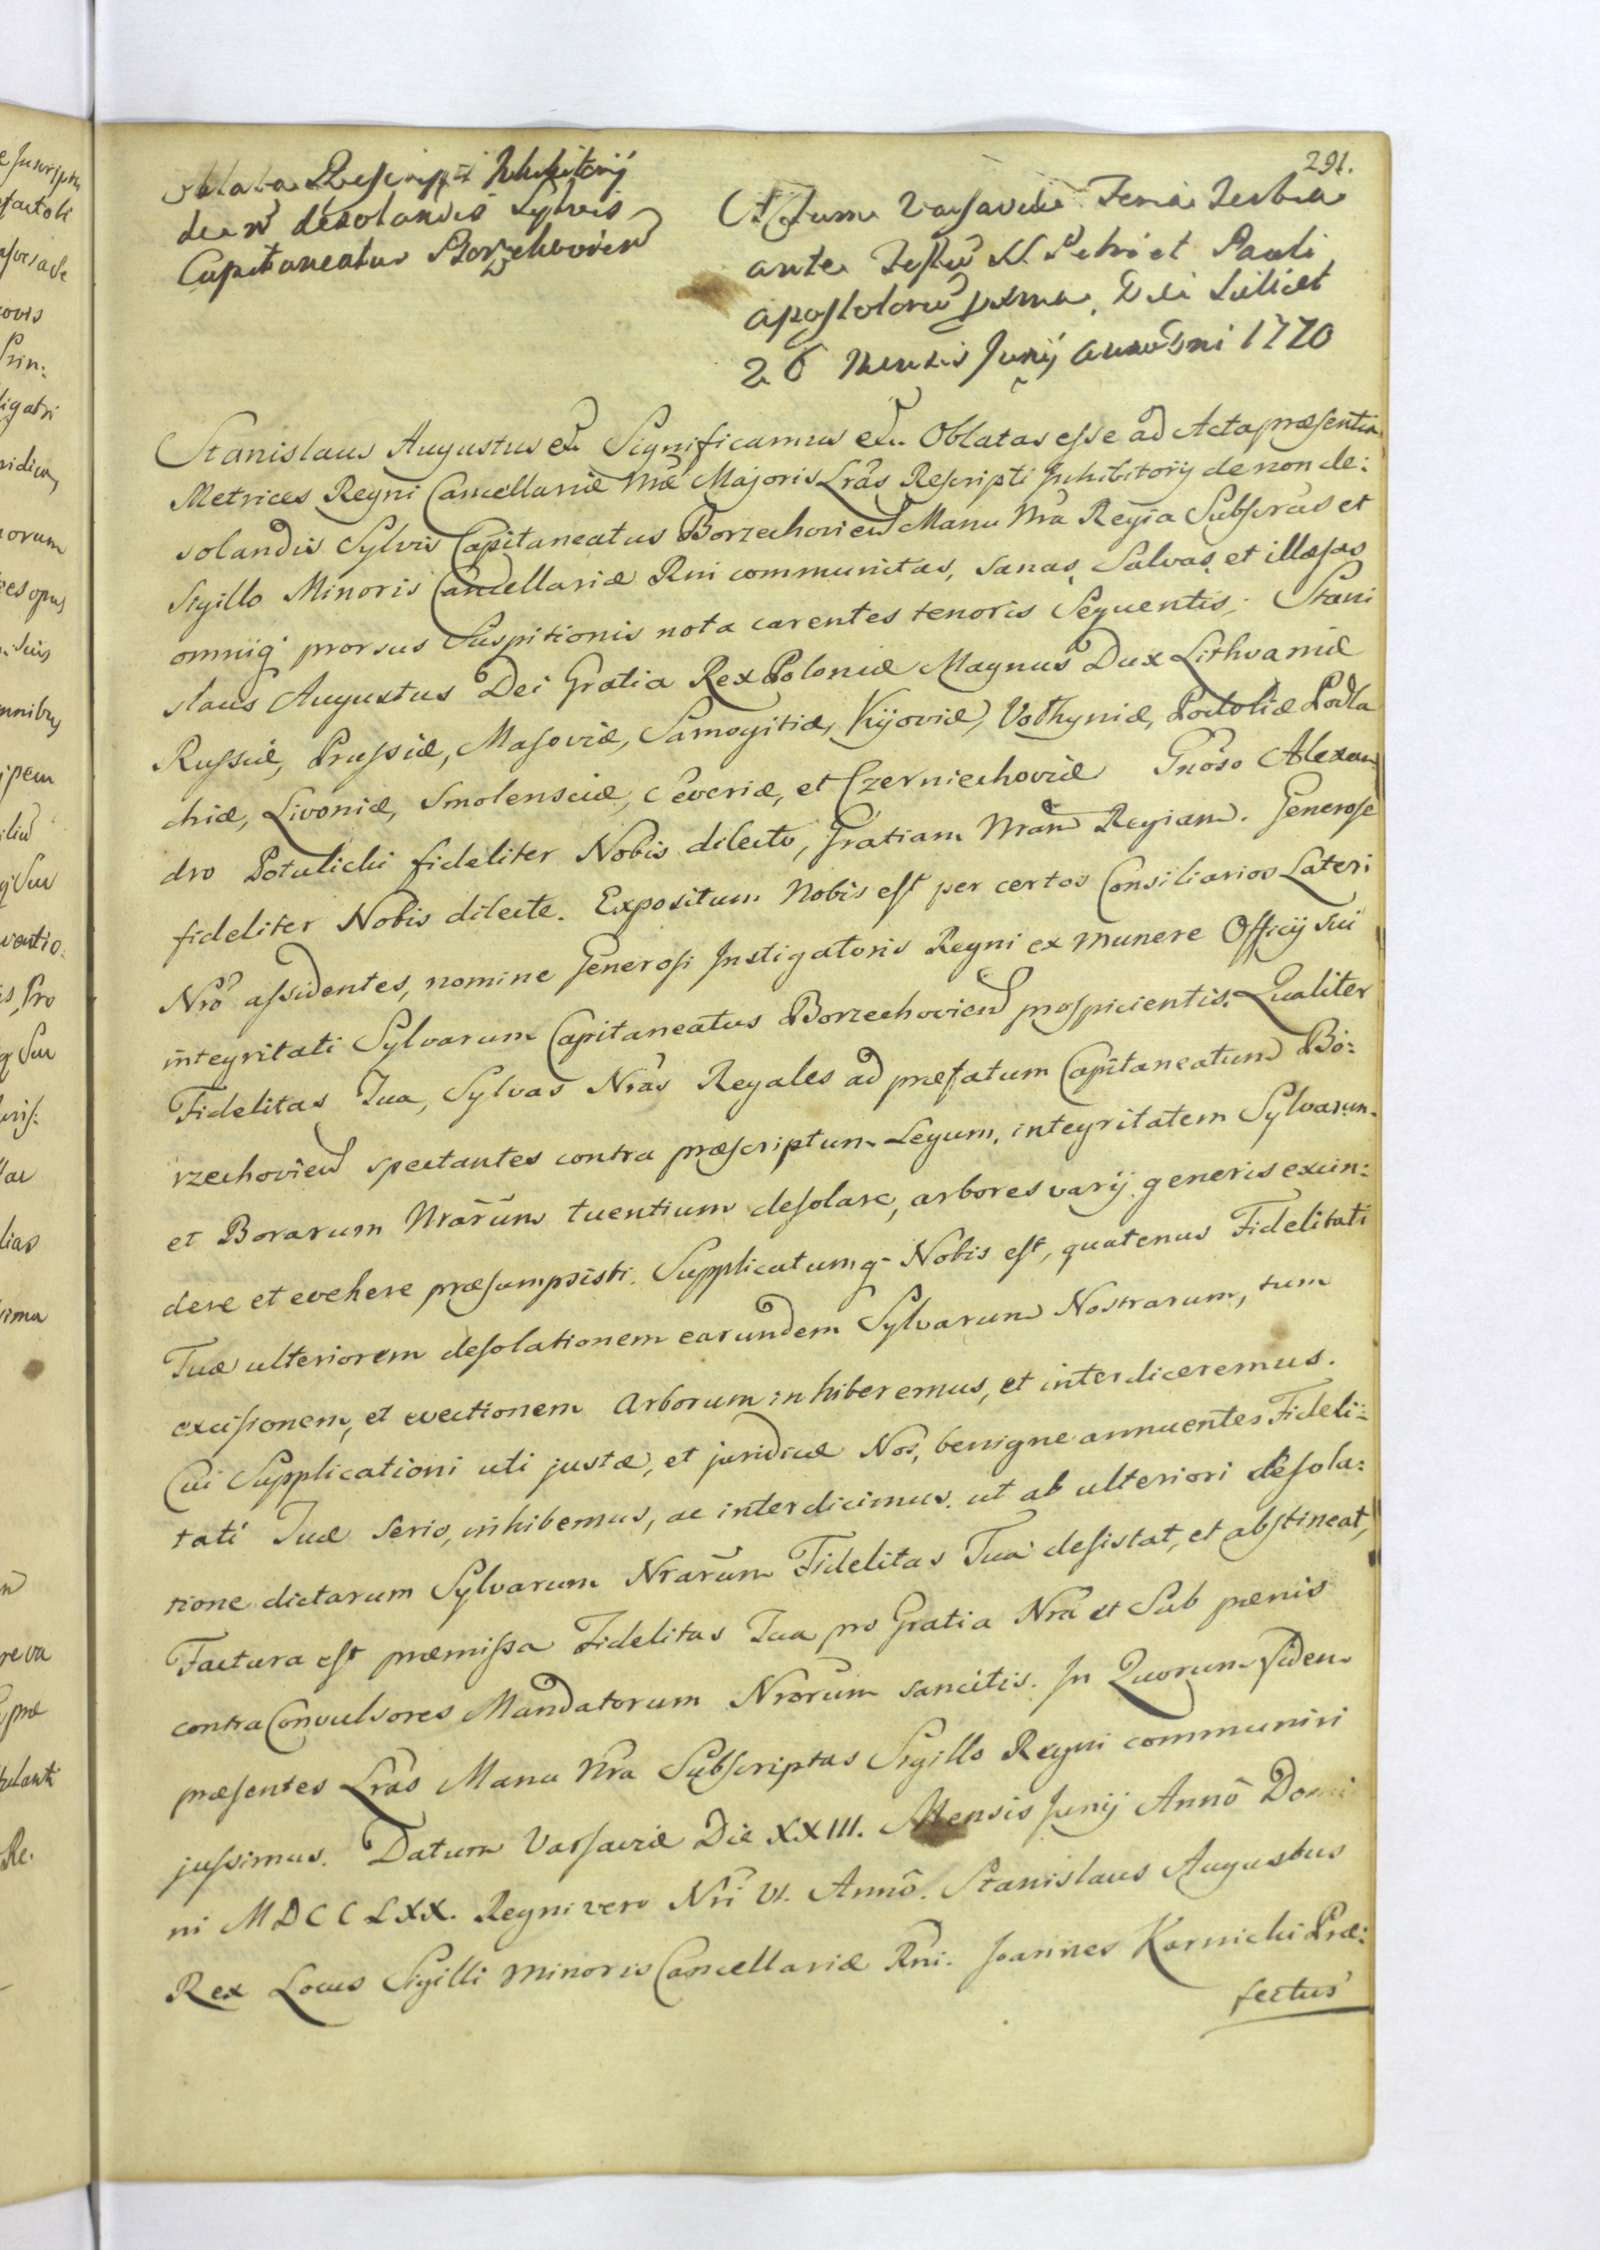 291.
Oblata Rescripti Inhibitorij
de ñ desolandis Sylvis
Capitaneatus Borzechovien̄
Actum Varsaviæ Feria Tertia
ante Festū SS. Petri et Pauli
Apostolorū pxma, Die Scilicet
26 Mensis Junij anno Dni 1770
Stanislaus Augustus etc Significamus etc. Oblatas esse ad Acta præsentia
Metrices Regni Cancellariæ Nræ Majoris Lras Rescripti Inhibitorij de non de:
solandis Sylvis Capitaneatus Borzechovien̄ Manu Nra Regia Subscras et
Sigillo Minoris Cancellariæ Rni communitas, sanas, Salvas, et illæsas
omniq prorsus Suspitionis nota carentes tenoris Sequentis: Stani
slaus Augustus Dei Gratia Rex Poloniæ Magnus Dux Lithvaniæ
Russiæ, Prussiæ, Masoviæ, Samogitiæ, Kijoviæ, Volhyniæ, Podoliæ Podla
chiæ, Livoniæ, Smolensciæ, Severiæ, et Czerniechoviæ Gnoso Alexan
dro Potulicki fideliter Nobis dilecto, Gratiam Nram Regiam. Generose
fideliter Nobis dilecte. Expositum Nobis est per certos Consiliarios Lateri
Nro assidentes, nomine Generosi Instigatoris Regni ex munere Officij sui
integritati Sylvarum Capitaneatus Borzechovien̄ prospicientis. Qualiter
Fidelitas Tua, Sylvas Nras Regales ad præfatum Capitaneatum Bo:
rzechovien̄ spectantes contra præscriptum Legum, integritatem Sylvarum
et Borarum Nrarum tuentium desolare, arbores varij generis excin:
dere et evehere præsumpsisti. Supplicatumq Nobis est, quatenus Fidelitati
Tuæ ulteriorem desolationem earundem Sylvarum Nostrarum, tum
excisionem, et evectionem Arborum inhiberemus, et interdiceremus.
Cui Supplicationi uti justæ, et juridicæ Nos, benigne annuentes Fideli:
tati Tuæ serio, inhibemus, ac interdicimus. ut ab ulteriori desola:
tione dictarum Sylvarum Nrarum Fidelitas Tua desistat, et abstineat,
Factura est præmissa Fidelitas Tua pro Gratia Nra et Sub pænis
contra Convulsores Mandatorum Nrorum sancitis. In Quorum fidem
præsentes Lras Manu Nra Subscriptas Sigillo Regni communiri
jussimus. Datum Varsaviæ Die XXIII. Mensis Junij Annô Domi
ni MDCCLXX. Regni vero Nri VI. Annô. Stanislaus Augustus
Rex Locus Sigilli Minoris Cancellariæ Rni. Joannes Karnicki Præ:
fectus